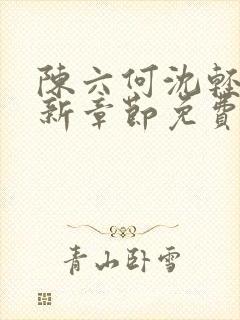 陳六何沈輕
新章節免費
青山卧雪